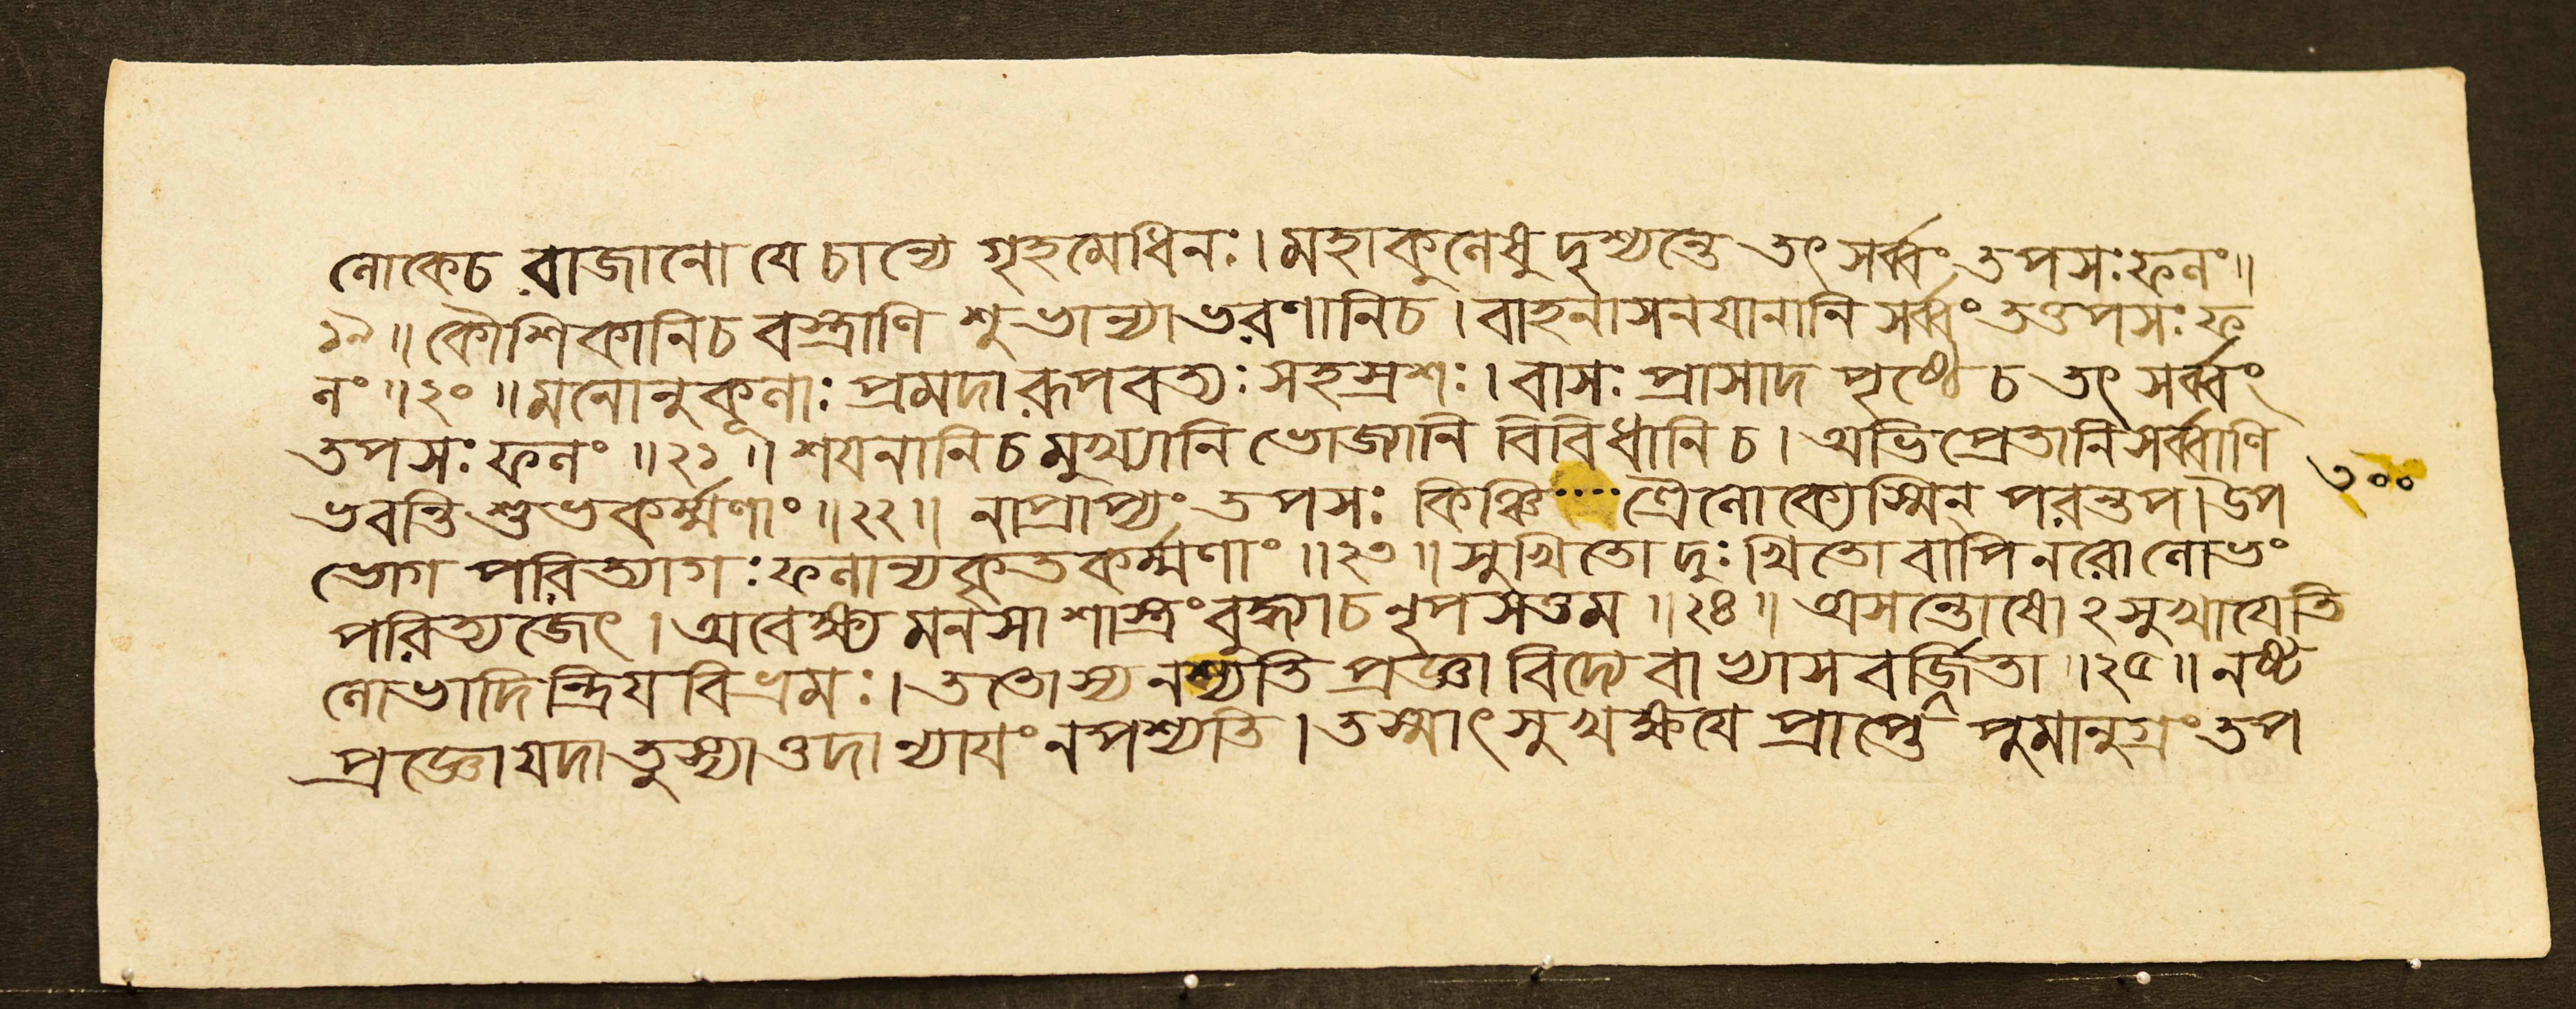 লোকেচ ৰাজানো যে চান্যে গৃহমেধিনঃ। মহাকুলেষু দৃশ্যন্তে তৎ সর্ব্বং তপসঃ ফলং॥
১৯॥ কৌশিকানিচ বস্ত্রাণি শুভান্যাভৰণানিচ। বাহনাসনযানানি সর্ব্বং তত্তপসঃ ফ
লং॥২০॥ মনোনুকূলাঃ প্রমদা ৰূপবত্যঃ সহস্রশঃ। বাসঃ প্রাসাদ পৃষ্ঠে চ তৎ সর্ব্বং
তপসঃ ফলং॥২১॥ শযনানিচ মুখ্যানি ভোজ্যানি বিবিধানি চ। অভিপ্রেতানি সর্ব্বাণি
ভবন্তি শুভকর্ম্মণাং॥২২॥ নাপ্রাপ্যং তপসঃ কিঞ্চি···· ত্রৈলোক্যেস্মিন্ পৰন্তপ। উপ
ভোগ পৰিত্যাগঃ ফলান্যকৃতকর্ম্মণাং॥২৩॥ সুখিতো দুঃখিতো বাপি নৰো লোভং
পৰিত্যজেৎ। অবেক্ষ্য মনসা শাস্ত্রং বুদ্ধ্যাচ নৃপসত্তম॥২৪॥ অসন্তোষো২সুখাযেতি
লোভাদিন্দ্রিযবিভ্রমঃ। ততোস্য নশ্যতি প্রজ্ঞা বিদ্যেবাভ্যাস বর্জিতা॥২৫॥ নষ্ট
প্রজ্ঞোযদাতুস্যাত্তদা ন্যাযং নপশ্যতি। তস্মাৎ সুখক্ষযে প্রাপ্তে পুমানুগ্রং তপ
৩০০